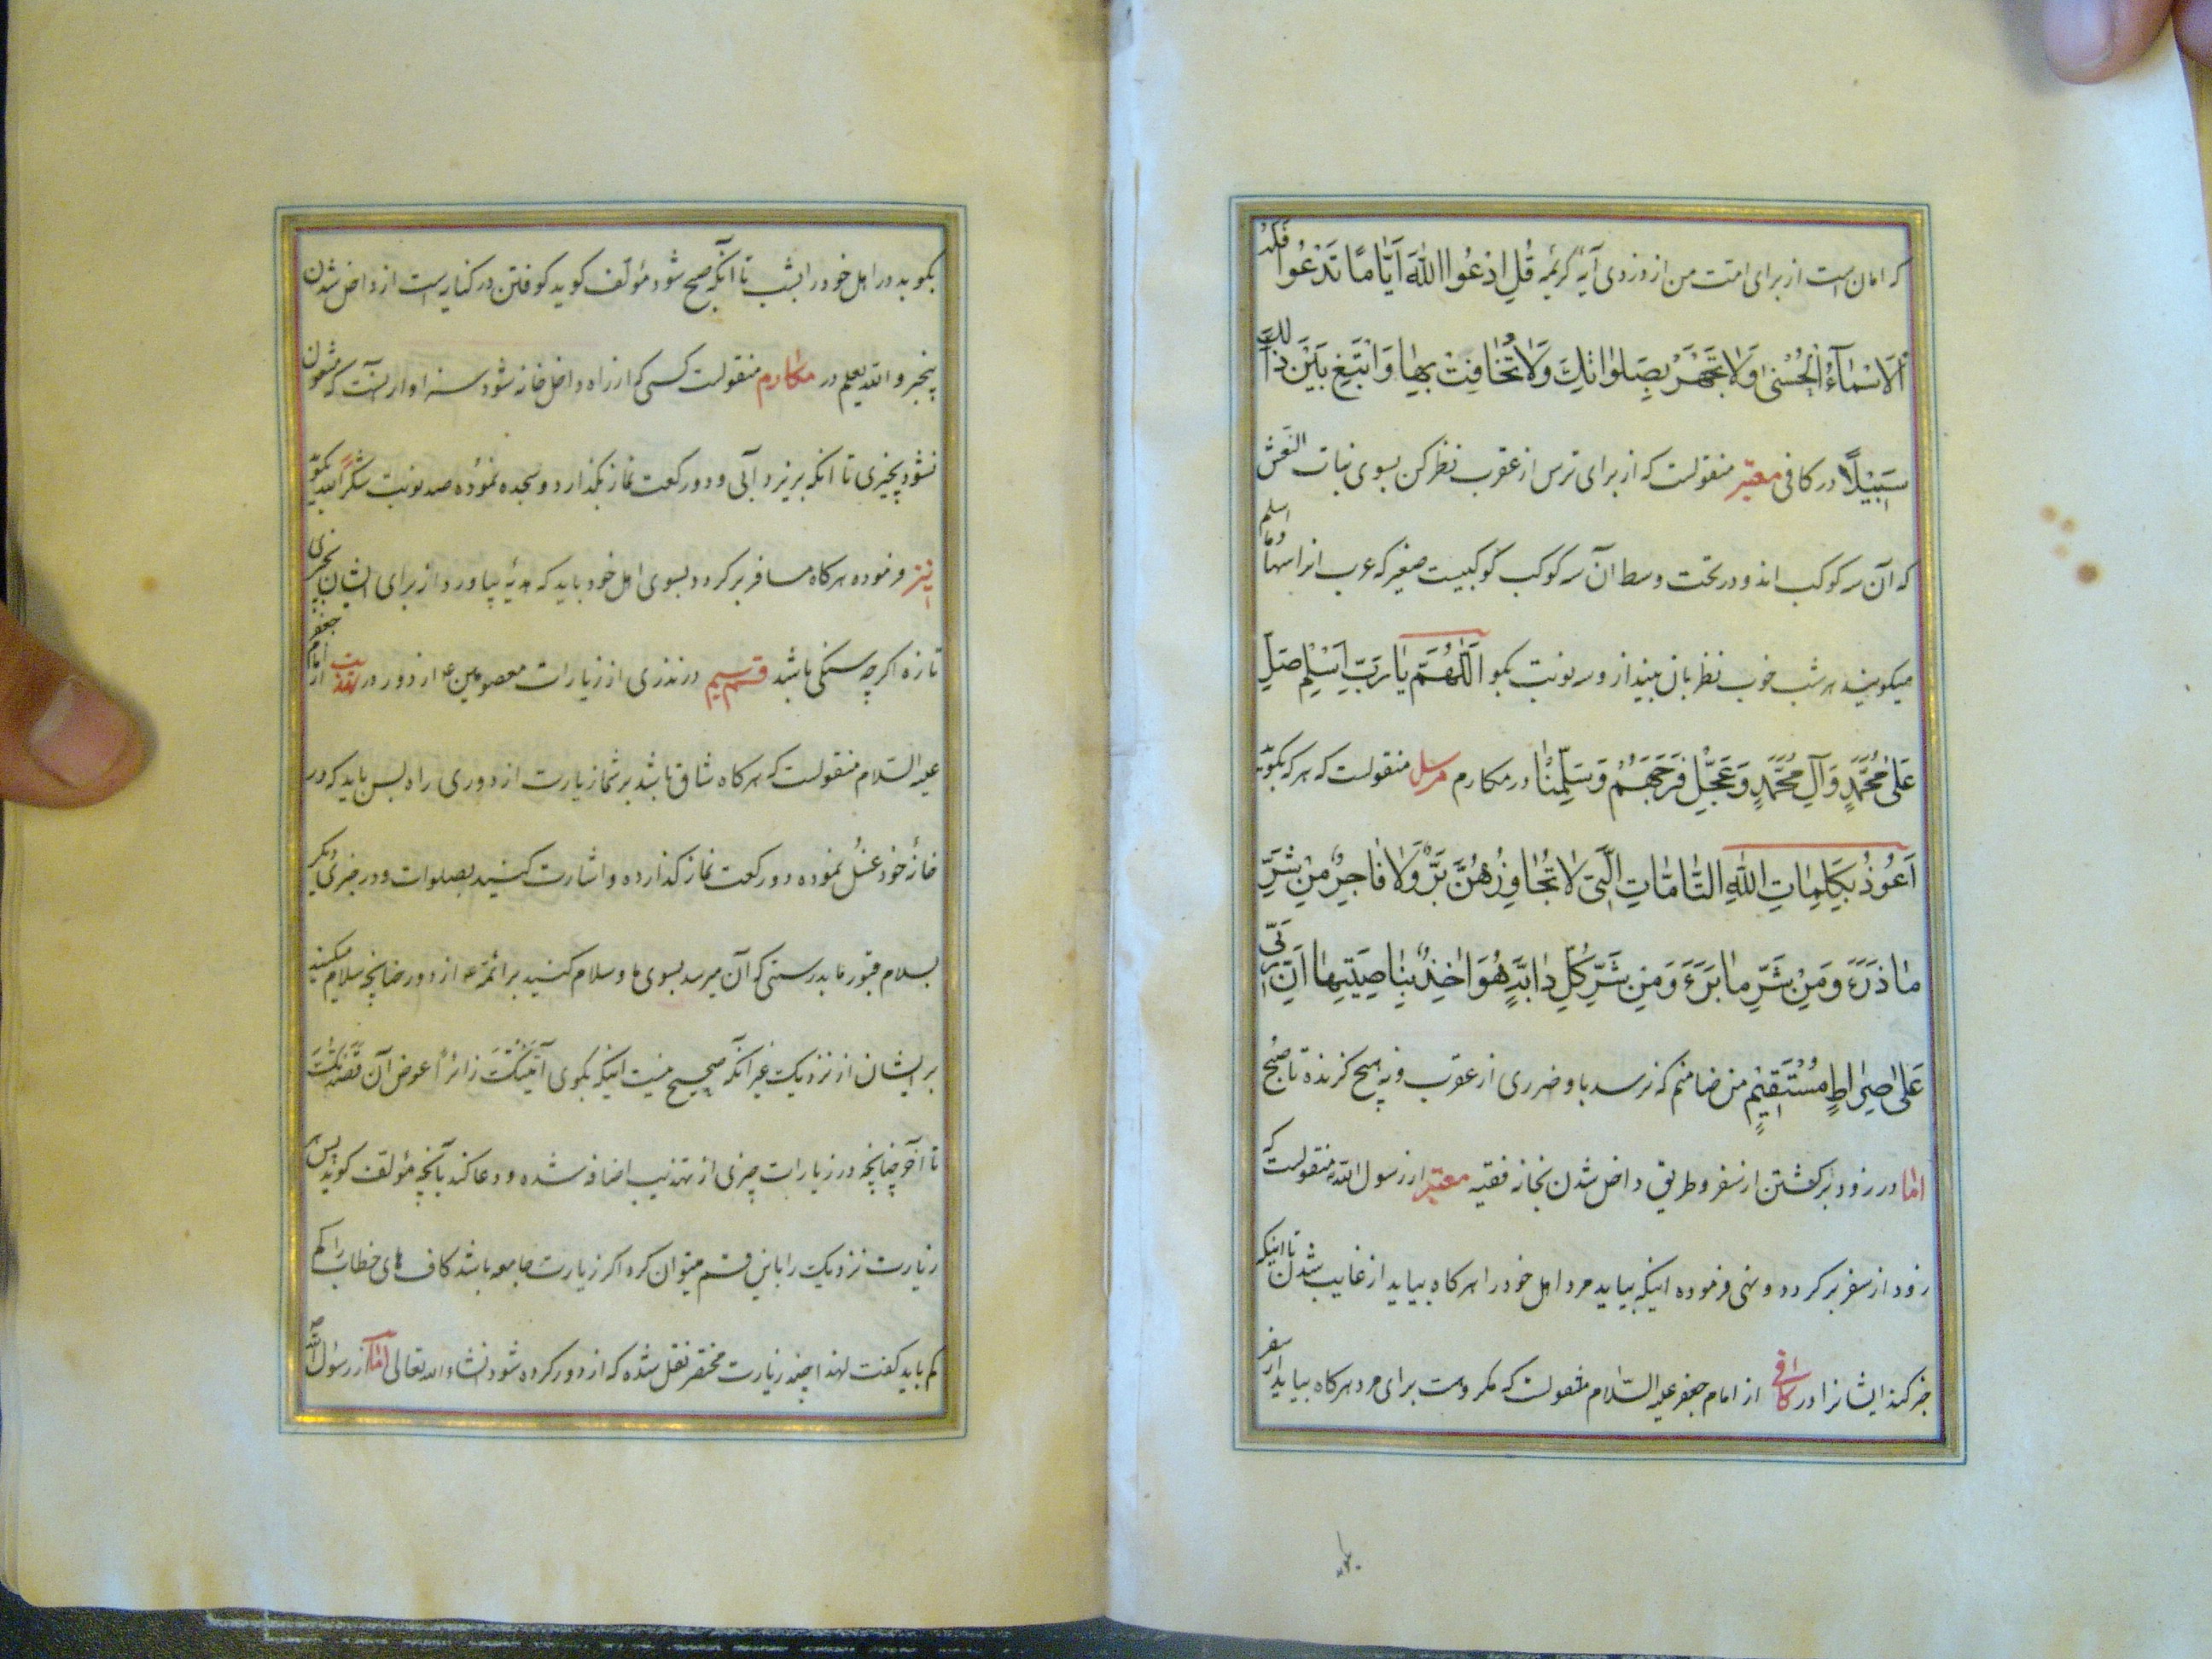 که امان است از برای امّت من از دزدی آیهٔ کریمه قُلِ ادْعُوا اللّٰهَ اَیًّامًا تَدْعُوا فَلَهُ
الْاَسْمٰآءُ الْحُسْنٰی وَلٰا تَجْهَرْ بِصَلٰوتِكَ وَلٰا تُخٰافِتْ بِهٰا وَابْتَغِ بَیْنَ ذٰلِكَ
سَبِیْلًا در کافی معتبر منقولست که از برای ترس از عقرب نظر کن بسوی نبات النعش
که آن سه کوکب اند و در تحت وسط آن سه کوکب کوکبیست صغیر که عرب انرا سها و ما اسلم
میکوییم هر شب خوب نظر بان بینداز و سه نوبت بکو اَللّٰهُمَّ یٰا رَبَّ اَسْلَمَ صَلِّ
عَلٰی مُحَمَّدٍ وَآلِ مُحَمَّدٍ وَعَجِّلْ فَرَجَهُمْ وَسَلِّمْنٰا در مکارم مرسل منقولست که هر که بکوید
اَعُوْذُ بِکَلِمٰاتِ اللّٰهِ التّٰامّٰاتِ الَّتِی لٰا تُجٰاوِزُهُنَّ بَرٌّ وَلٰا فٰاجِرٌ مِنْ شَرِّ
مٰا ذَرَءَ وَمِنْ شَرِّ مٰا بَرَءَ وَمِنْ شَرِّ کُلِّ دٰابَّةٍ هُوَ اٰخِذٌ بِنٰاصِیَتِهٰا اِنَّ رَبِّی
عَلٰی صِرٰاطٍ مُسْتَقِیْمٍ من ضامنم که نرسد باو ضرری از عقرب و نه هیچ کزنده تا صبح
امّا در زود برکشتن از سفر و طریق داخل شدن بخانه فقیه معتبر از رسول اللّه منقولست که
زود از سفر برکردد و نهی فرموده اینکه بیاید مرد اهل خود را هر کاه بیاید از غایب شدن تا اینکه
خبر کند ایشانرا در کافی از امام جعفر علیه السّلام منقولست که مکروهست برای مرد هر کاه بیاید از سفر
بکوبد در اهل خود را بشب تا آنکه صبح شود مؤلّف کوید کوفتن در کنایه است از داخل شدن
بیخبر و اللّه یعلم در مکارم منقولست کسی که از راه داخل خانه شود سزاوار آنست که مشغول
نشود بچیزی تا انکه بریزد آبی و دو رکعت نماز بکذارد و سجده نموده صد نوبت شکراً للّه بکوید
ایضا فرموده هر کاه مسافر برکردد بسوی اهل خود باید که هدیّه بیاورد از برای ایشان بچیزی
تازه اکر چه سنکی باشد قسم سیم در نذری از زیارات معصومین ع از دور در تهذیب از امام جعفر
علیه السّلام منقولست که هر کاه شاق باشد بر شما زیارت از دوری راه پس باید که در
خانهٔ خود غسل نموده دو رکعت نماز کذارده و اشارت کنید بصلوات و در خبری دیکر
بسلام قبور ما بدرستی که آن میرسد بسوی ما و سلام کنید بر ائمّه ع از دور چنانچه سلام میکنید
بر ایشان از نزدیک غیر آنکه صحیح نیست اینکه بکوی اَتَیْتُكَ زائراً عوض آن قَصَدْتُكَ
تا آخر چنانچه در زیارات چیزی از تهذیب اضافه شده و دعا کند بآنچه مؤلّف کوید پس هر
زیارت نزدیک را باین قسم میتوان کرد اکر زیارت جامعه باشد کاف های خطاب را کم
کم باید کفت لهذا چند زیارت مختصر نقل شده که از دور کرده شود انشاء اللّه تعالی امّا از رسول اللّه ص